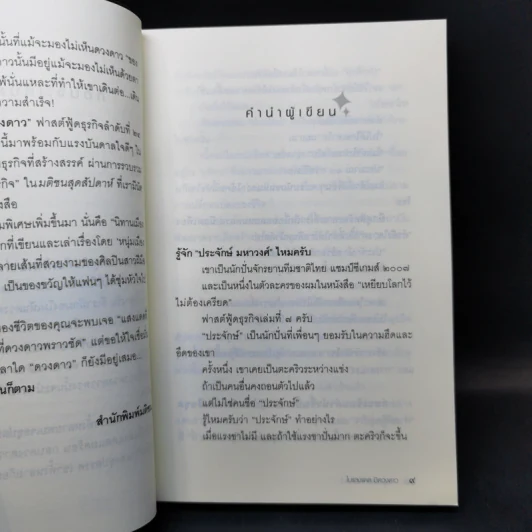 นั้นที่แม้จะมองไม่เห็นดวงดาว "ของ
าวนั้นมีอยู่แม้จะมองไม่เห็นด้วยตา
นั่นแหละที่ทำให้เขาเดินต่อ...เดิน
ความสำเร็จ!
วงดาว" ฟาสต์ฟู้ดธุรกิจลำดับที่ ๒๑
นี้มาพร้อมกับแรงบันดาลใจดีๆ
ธุรกิจที่สร้างสรรค์ ผ่านการรวบรวม
กิจ" ในมติชนสุดสัปดาห์ ที่เรามี
สือ
มพิเศษเพิ่มขึ้นมา นั่นคือ "นิทาน
กที่เขียนและเล่าเรื่องโดย "หนุ่มเมือ
ลายเส้นที่สวยงามของศิลปินสาว
เป็นของขวัญให้แฟนๆ ได้ชุ่มหัวใ
องชีวิตของคุณจะพบเจอ "แสงแดด
ที่ดวงดาวพราวชัด" แต่ขอให้ใจเชื่อ
ลาใด "ดวงดาว" ก็ยังมีอยู่เสมอ...
นก็ตาม
สำนักพิมพ์มติชน
คำนำผู้เขียน
รู้จัก "ประจักษ์ มหาวงศ์" ไหมครับ
เขาเป็นนักปั่นจักรยานทีมชาติไทย แชมป์ซีเกมส์ ๒๐๐๗
และเป็นหนึ่งในตัวละครของผมในหนังสือ "เหยียบโลกไว้
ไม่ต้องเครียด"
ฟาสต์ฟู้ดธุรกิจเล่มที่ ๗ ครับ
"ประจักษ์" เป็นนักปั่นที่เพื่อนๆ ยอมรับในความฮึดและ
อึดของเขา
ครั้งหนึ่ง เขาเคยเป็นตะคริวระหว่างแข่ง
ถ้าเป็นคนอื่นคงถอนตัวไปแล้ว
แต่ไม่ใช่คนชื่อ "ประจักษ์"
รู้ไหมครับว่า "ประจักษ์" ทำอย่างไร
เมื่อแรงขาไม่มี และถ้าใช้แรงขาปั่นมาก ตะคริวก็จะขึ้น
ในแสงแดด มีดวงดาว ๙